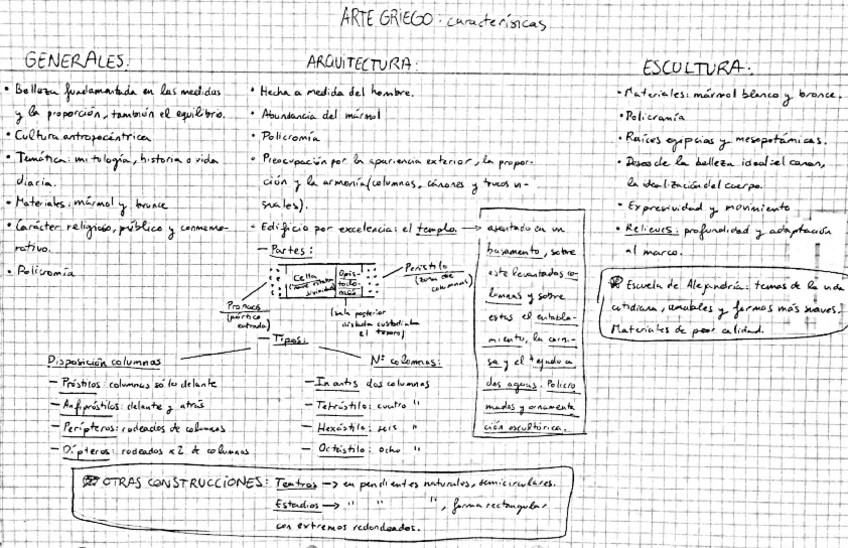 ARTE GRIEGO: características
GENERALES:
• Belleza fundamentada en las medidas
y la proporción, también el equilibrio.
• Cultura antropocéntrica
• Temática: mitología, historia o vida
diaria.
• Materiales: mármol y bronce
• Carácter religioso, público y conmemo-
rativo.
• Policromía
ARQUITECTURA:
• Hecha a medida del hombre.
• Abundancia del mármol
• Policromía
• Preocupación por la apariencia exterior, la propor-
ción y la armonía (columnas, cánones y trucos vi-
suales).
• Edificio por excelencia: el templo →
asentado en un
basamento, sobre
este levantadas co-
lumnas y sobre
estas el entabla-
miento, la corni-
sa y el tejado a
dos aguas. Policro
mados y ornamenta
ción escultórica.
— Partes:
Cella
Opis-
todo-
mos
Peristilo
(zona de
columnas)
Pronaos
(pórtico
entrada)
(sala posterior
aislada custodiaba
el tesoro)
— Tipos:
Disposición columnas
— Próstilos: columnas sólo delante
— Anfipróstilos: delante y atrás
— Perípteros: rodeados de columnas
— Dípteros: rodeados x2 de columnas
Nº columnas:
— In antis dos columnas
— Tetrástilo: cuatro "
— Hexástilo: seis "
— Octástilo: ocho "
OTRAS CONSTRUCCIONES: Teatros → en pendientes naturales, semicirculares.
Estadios → " " ", forma rectangular
con extremos redondeados.
ESCULTURA:
• Materiales: mármol blanco y bronce.
• Policromía
• Raíces egipcias y mesopotámicas.
• Deseo de la belleza ideal: el canon,
la idealización del cuerpo.
• Expresividad y movimiento
• Relieves: profundidad y adaptación
al marco.
Escuela de Alejandría: temas de la vida
cotidiana, amables y formas más suaves.
Materiales de peor calidad.